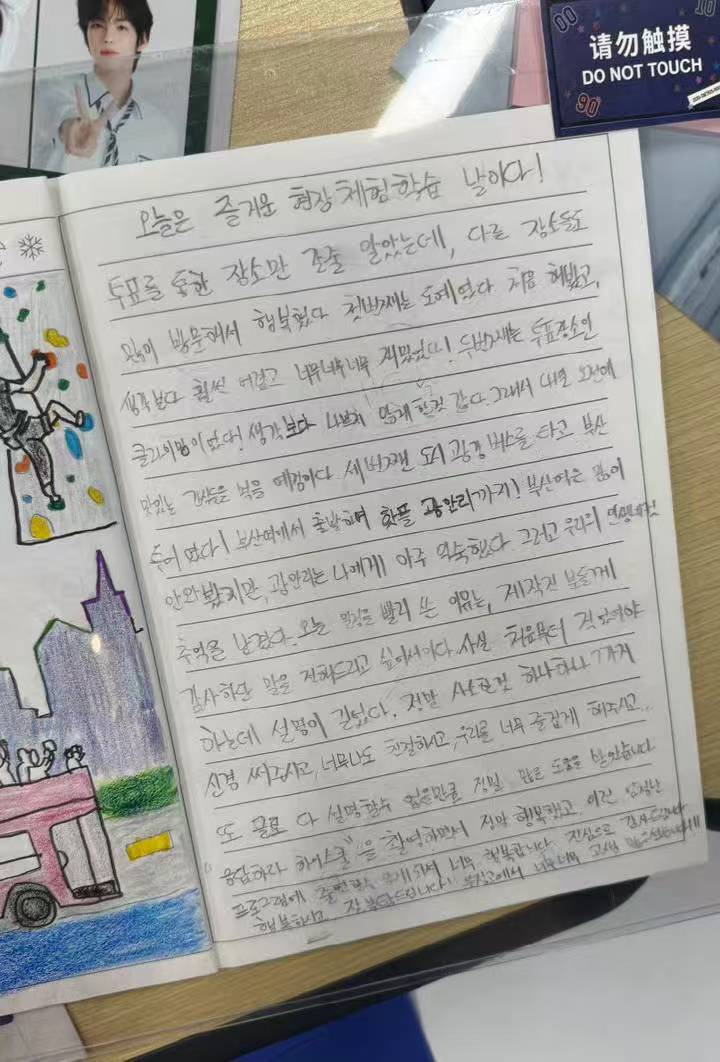 请勿触摸
DO NOT TOUCH
00
10
90
오늘은 즐거운 현장체험학습 날이다!
투표를 통한 장소만 존줄 알았는데, 다른 장소들도
많이 방문해서 행복했다 첫번째는 도예였다 처음 해봤고,
생각보다 훨씬 어렵고 너무너무너무 재밌었다! 두번째는 투표장소인
클라이밍이였다! 생각보다 나쁘지 않게 한것 같다. 그래서 내일 오전에
맛있는 간식을 먹을 예정이다 세번짼 도시 관광 버스를 타고 부산
투어였다! 부산역에서 출발하여 핫플 광안리까지! 부산역은 많이
안와봤지만, 광안리는 나에게 아주 익숙했다. 그러고 우리의 인생네컷
추억을 남겼다. 오늘 일정을 빨리 쓴 이유는, 제작진 분들께
감사하단 말을 전해드리고 싶어서이다. 사실 처음부터 적었어야
하는데 설명이 길었다. 정말 사소한것 하나하나까지
신경 써주시고, 너무나도 친절하시고, 우리를 너무 즐겁게 해주시고...
또 글로 다 설명할수 없을만큼 정말 많은 도움을 받았습니다
"응답하라 하이스쿨"을 촬영하면서 정말 행복했고, 이런 엄청난
프로그램에 출연할수 있게 되어 너무 행복합니다 진심으로 감사드립니다
행복하시고 잘 부탁드립니다! 너무너무 고생 많으셨습니다!!